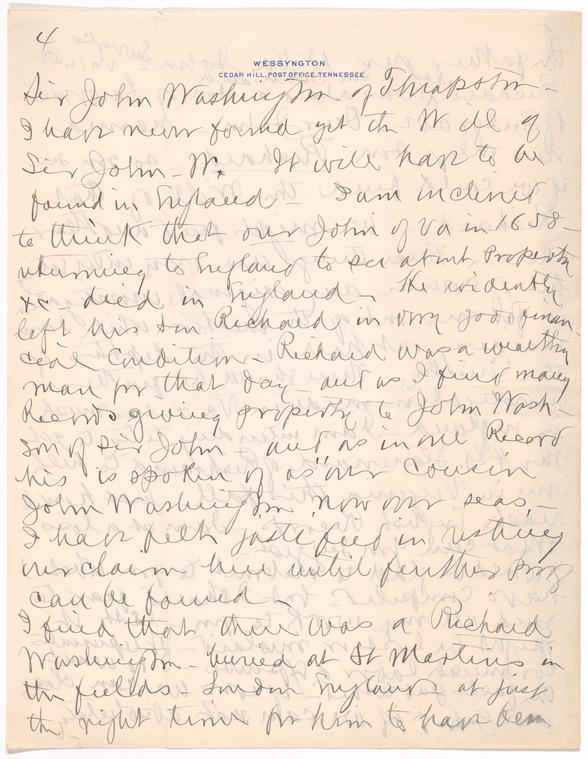 4
WESSYNGTON
CEDAR HILL, POST OFFICE, TENNESSEE
Sir John Washington of Thrapston -
I have never found yet the Will of
Sir John - W. It will have to be
found in England - I am inclined
to think that our John of Va in 1658 -
returning to England to see about Property
&c - died in England - He evidently
left his son Richard in very good finan-
cial condition - Richard was a wealthy
man for that day - and as I find many
Records giving property to John Wash-
son of Sir John - and as in one Record
his is spoken of as "our cousin
John Washington, now over seas, -
I have felt justified in resting
our claim here until further proof
can be found -
I find that there was a Richard
Washington - buried at St Martins in
the fields - London England at just
the right time for him to have been